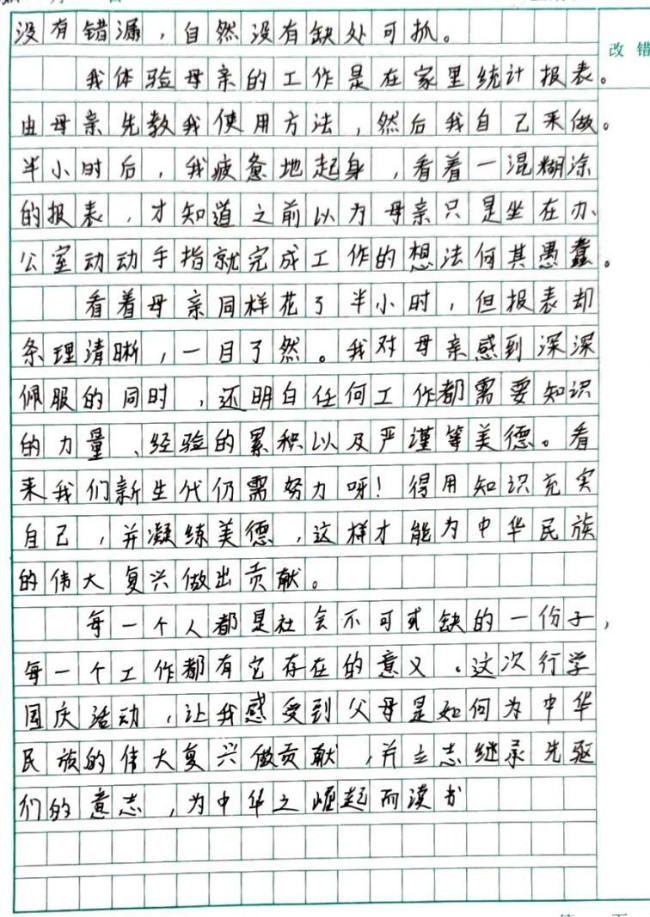 没有错漏，自然没有缺处可抓。
改错
我体验母亲的工作是在家里统计报表。
由母亲先教我使用方法，然后我自己来做。
半小时后，我疲惫地起身，看着一混糊涂
的报表，才知道之前以为母亲只是坐在办
公室动动手指就完成工作的想法何其愚蠢。
看着母亲同样花了半小时，但报表却
条理清晰，一目了然。我对母亲感到深深
佩服的同时，还明白任何工作都需要知识
的力量、经验的累积以及严谨等美德。看
来我们新生代仍需努力呀！得用知识充实
自己，并凝练美德，这样才能为中华民族
的伟大复兴做出贡献。
每一个人都是社会不可或缺的一份子，
每一个工作都有它存在的意义。这次行学
国庆活动，让我感受到父母是如何为中华
民族的伟大复兴做贡献，并立志继承先驱
们的意志，为中华之崛起而读书